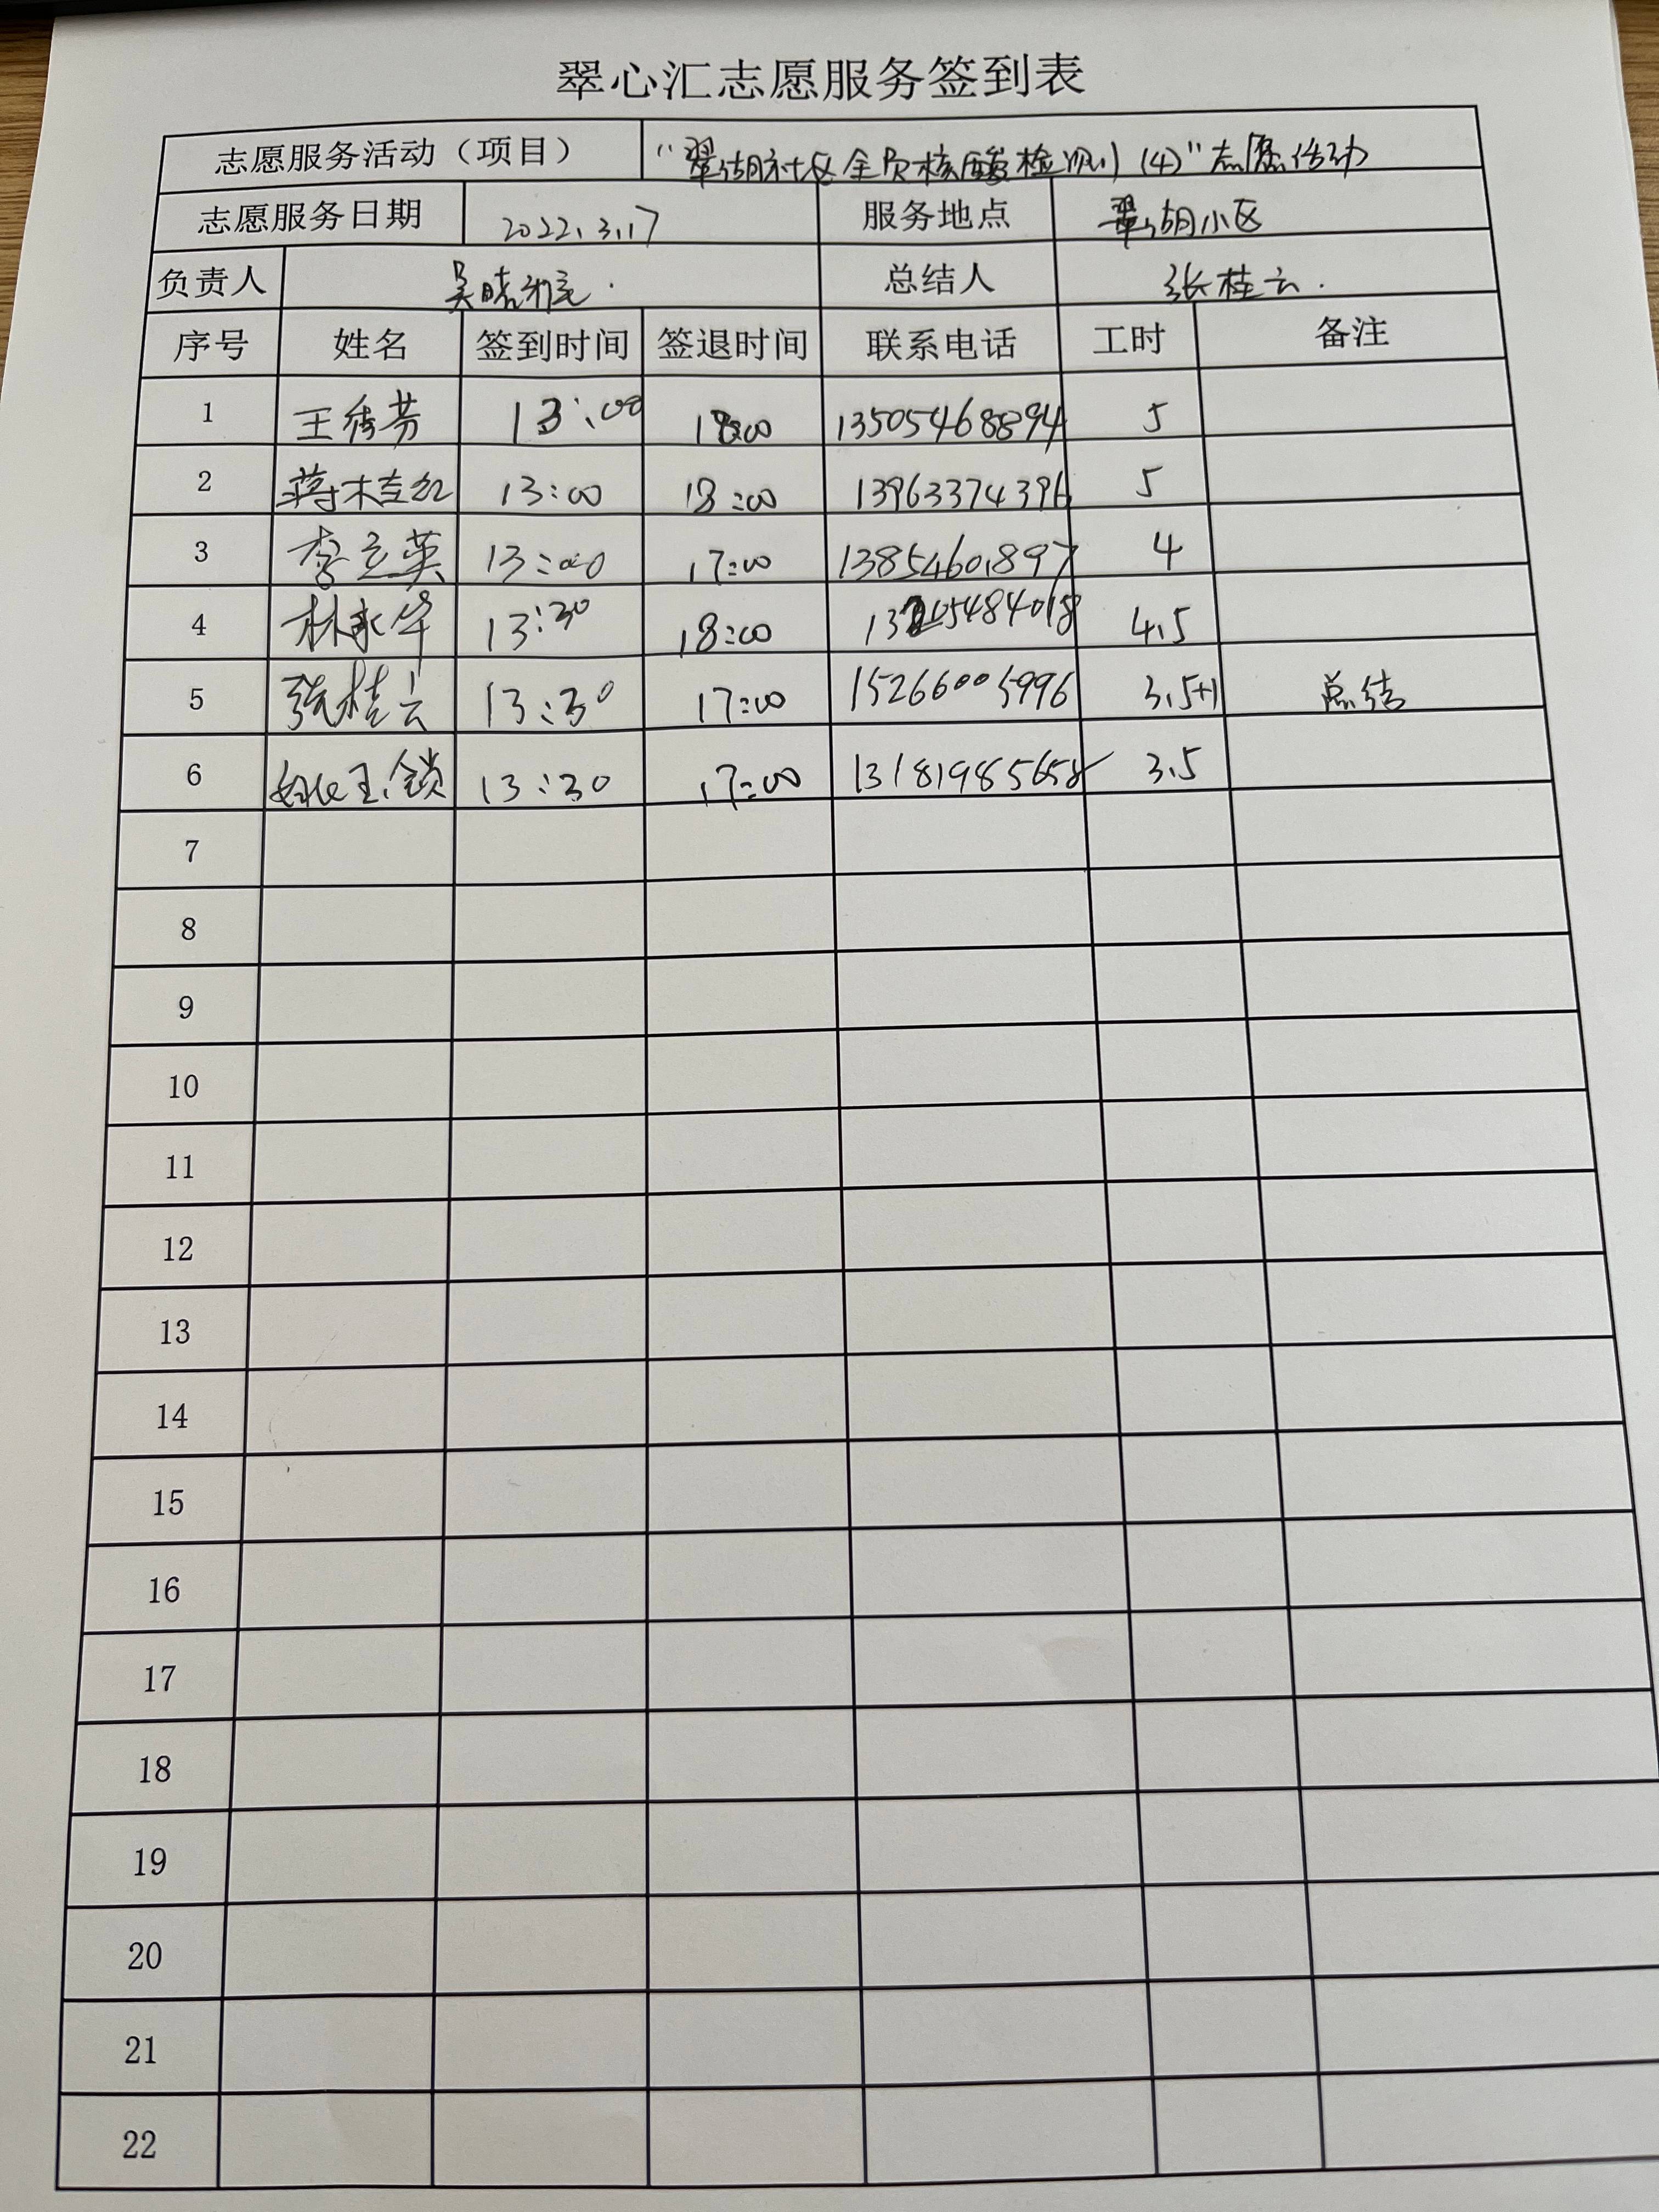 翠心汇志愿服务签到表
志愿服务活动（项目） “翠湖社区全员核酸检测（4）”志愿活动
志愿服务日期 2022.3.17 服务地点 翠湖小区
负责人 总结人 张桂云.
序号 姓名 签到时间 签退时间 联系电话 工时 备注
1 王秀芬 13:00 18:00 13505468894 5
2 蒋桂红 13:00 18:00 13963374396 5
3 李立英 13:00 17:00 13854601897 4
4 林永华 13:30 18:00 13205484018 4.5
5 张桂云 13:30 17:00 15266005996 3.5+1 总结
6 13:30 17:00 13181985658 3.5
7
8
9
10
11
12
13
14
15
16
17
18
19
20
21
22